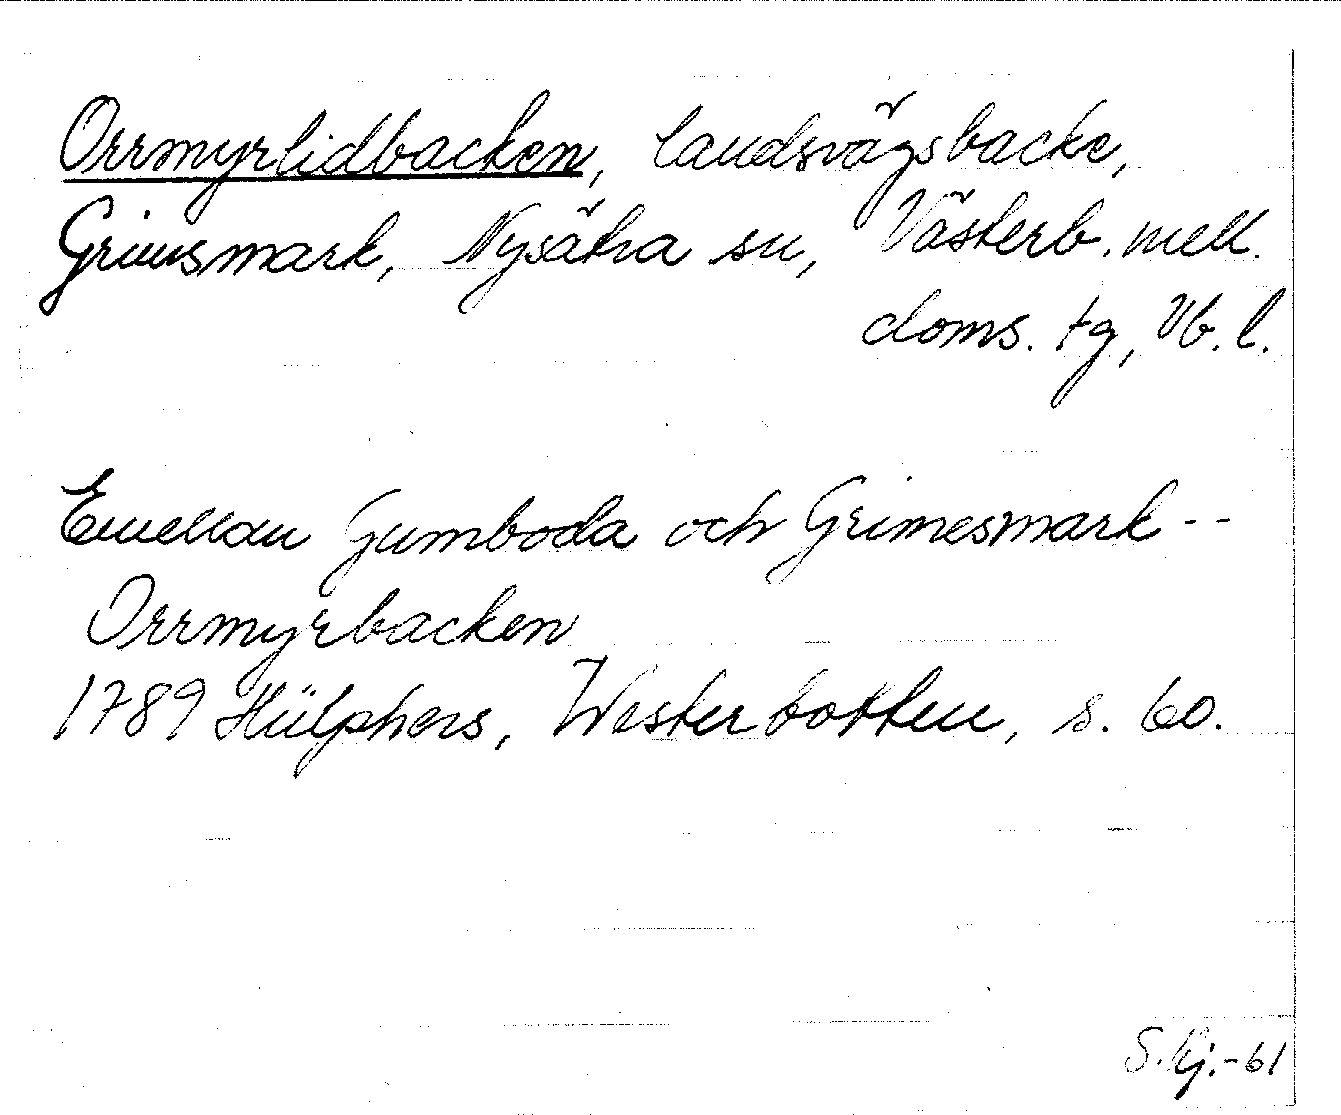 Orrmyrlidbacken, landsvägsbacke,
Grimsmark, Nysätra sn, Västerb. mell.
doms. tg, Vb. l.
Emellan Gumboda och Grimesmark --
Orrmyrbacken
1789 Hülphers, Westerbotten, s. 60.
S. Lj. -61